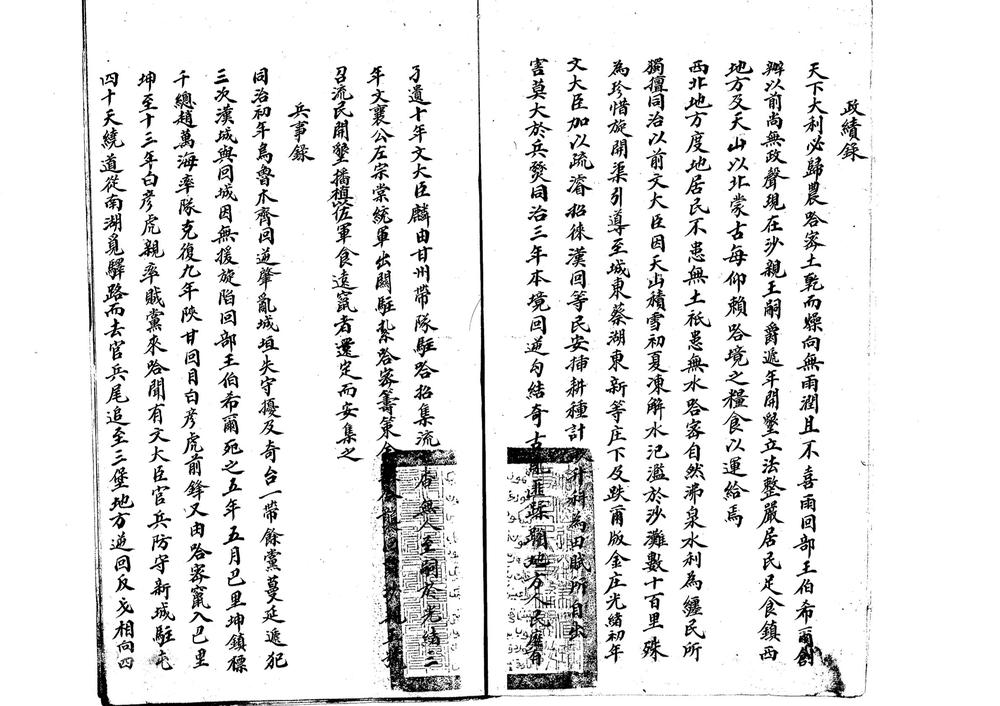 政績錄
天下大利必歸農哈密土乾而燥向無雨潤且不喜雨回部王伯希爾創
辦以前尚無政聲現在沙親王嗣爵遞年開墾立法整嚴居民足食鎮西
地方及天山以北蒙古每仰賴哈境之糧食以運給焉
西北地方度地居民不患無土祇患無水哈密自然沸泉水利為纏民所
獨擅同治以前文大臣因天山積雪初夏凍解水氾濫於沙灘數十百里殊
為珍惜旋開渠引導至城東蔡湖東新等庄下及跌爾版金庄光緒初年
文大臣加以疏濬招徠漢回等民安揷耕種計升科為田賦所自出
害莫大於兵燹同治三年本境回逆勾結奇古匪蹂躪地方人民靡有
孑遺十年文大臣麟由甘州帶隊駐哈招集流無人至嗣於光緒二
年文襄公左宗棠統軍出關駐紮哈密籌策
召流民開墾播植佐軍食遠竄者還定而安集之
兵事錄
同治初年烏魯木齊回逆肇亂城垣失守擾及奇台一帶餘黨蔓延遞犯
三次漢城與回城因無援旋陷回部王伯希爾死之五年五月巴里坤鎮標
千總趙萬海率隊克復九年陝甘回目白彥虎前鋒又由哈密竄入巴里
坤至十三年白彥虎親率賊黨來哈聞有文大臣官兵防守新城駐屯
四十天繞道從南湖覓驛路而去官兵尾追至三堡地方逆回反戈相向四